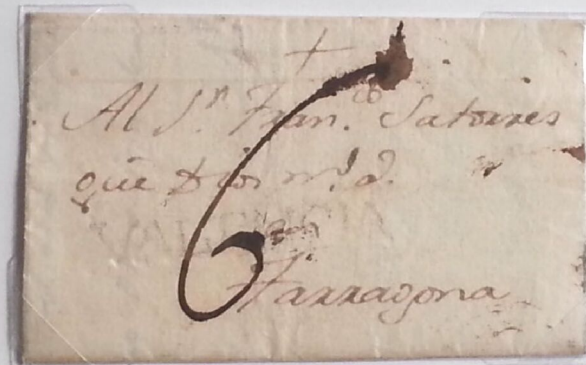 +
Al S.r Fran.co Satorres
que Dios m.s a.s
6
Tarragona